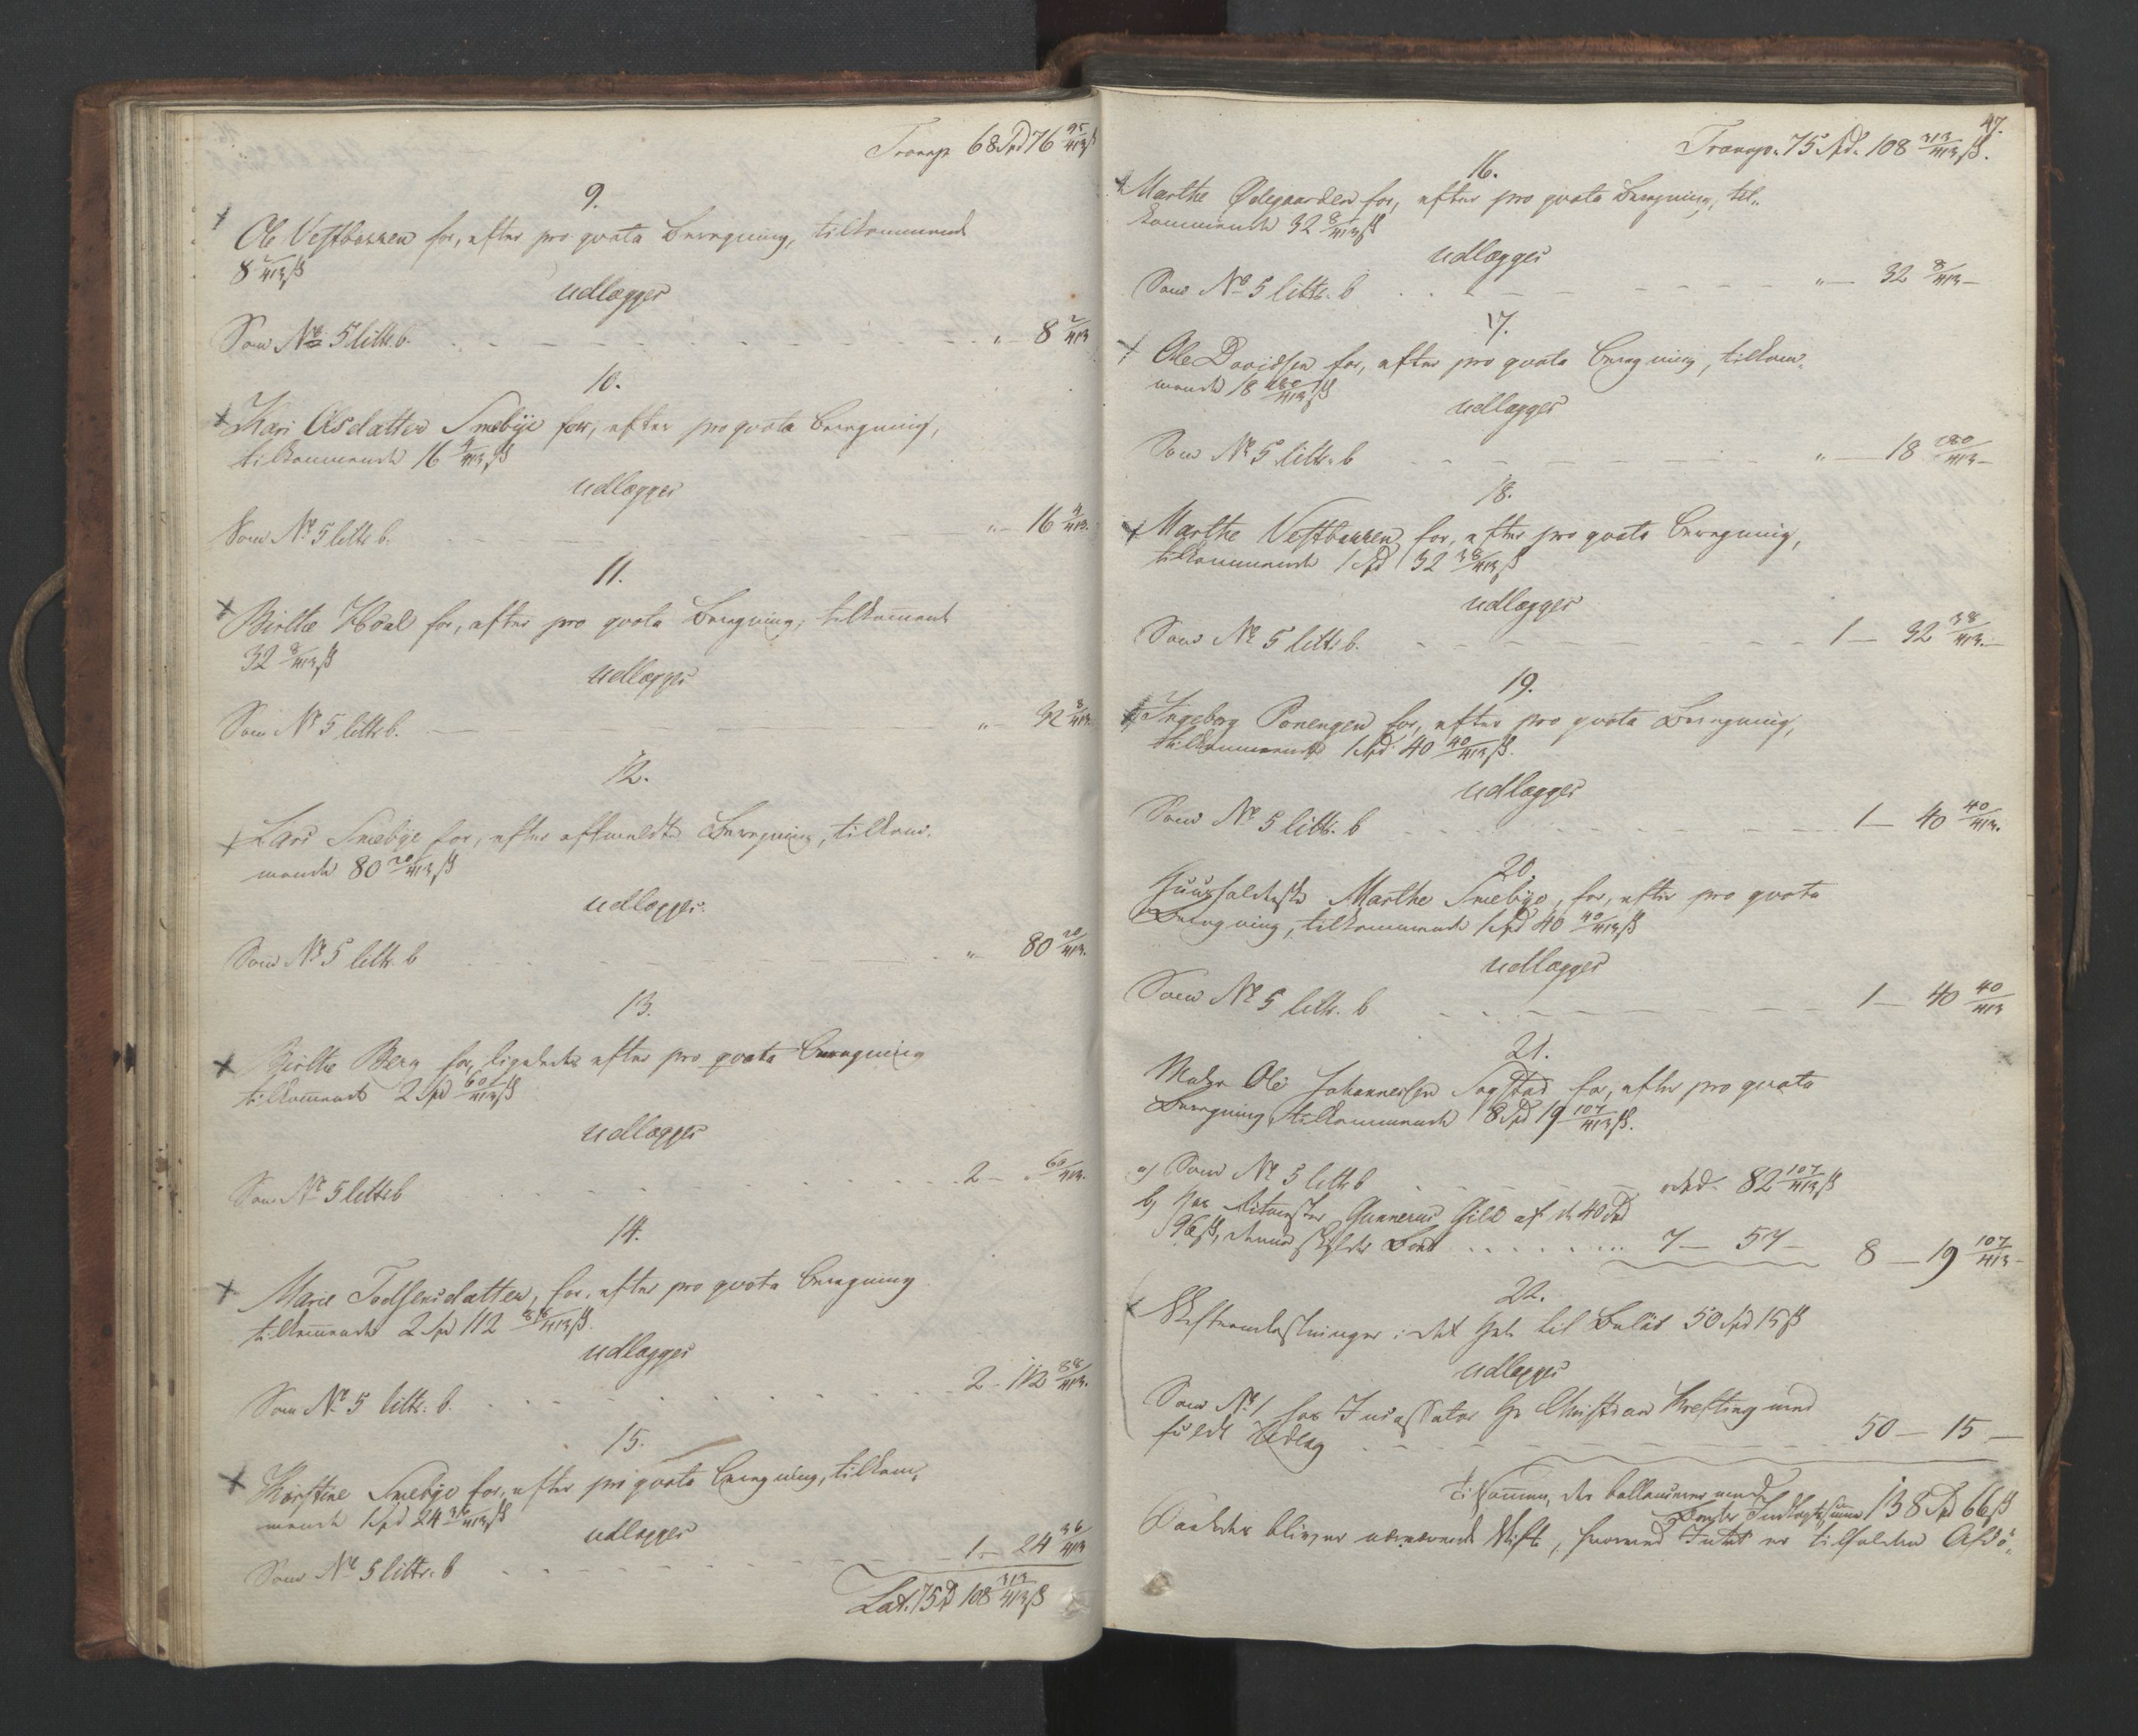 Transp 68 Spd 76 95/413 ß
9.
Ole Vestbakken for, efter pro qvota Beregning, tilkommende
8 2/413 ß
udlægges
Som No 5 littr. b. " 8 2/413
10.
Kari Olsdatter Smebye for, efter pro qvota Beregning,
tilkommende 16 4/413 ß
udlægges
Som No 5 littr b. " 16 4/413.
11.
Birthe Hoel for, efter pro qvota Beregning, tilkommende
32 8/413 ß
udlægges
Som No 5 littr b. " 32 8/413
12.
Lars Smebye for, efter Beregning, tilkom-
mende 80 20/413 ß
udlægges
Som No 5 littr. b " 80 20/413.
13.
Birthe Berg for, ligeledes efter pro qvota Beregning
tilkommende 2 Spd 60/413 ß
udlægges
Som No 5 littr b 2 — " 60/413.
14.
Marie Todsensdatter, for, efter pro qvota Beregning
tilkommende 2 Spd 112 88/413 ß.
udlægges
Som No 5 littr. b. 2 - 112 88/413.
15.
Kirstine Smebye for, efter pro qvota Beregning, tilkom-
mende 1 Spd 24 36/413 ß
udlægges
Som No 5 littr. b 1 — 24 36/413
Lat. 75 Spd 108 313/413 ß
47.
Transp. 75 Spd. 108 313/413 ß.
16.
Marthe Ødegaarden for, efter pro qvota Beregning, til-
kommende 32 8/413 ß
udlægges
Som No 5 littr. b " — 32 8/413 —
17.
Ole Davidsen for, efter pro qvota Beregning, tilkom-
mende 18 280/413 ß
udlægges
Som No 5 littr. b " — 18 280/413 —
18.
Marthe Vestbakken for, efter pro qvota Beregning,
tilkommende 1 Spd 32 38/413 ß
udlægges
Som No 5 littr b. 1 — 32 38/413. —
19.
Ingeborg Ponengen for, efter pro qvota Beregning,
tilkommende 1 Spd. 40 40/413 ß.
udlægges
Som No 5 littr. b 1 — 40 40/413.
20.
Marthe Smebye, for, efter pro qvota
Beregning, tilkommende 1 Spd 40 40/413 ß
udlægges
Som No 5 littr. b 1 — 40 40/413
21.
Ole Johannesen Sagstad for, efter pro qvota
Beregning, tilkommende 8 Spd 19 107/413 ß.
a) Som No 5 littr b 82 107/413 ß
b) Hos Gunnerus Gild af de 40 Spd
96 ß, 7 — 57 — 8 — 19 107/413 —
22.
Skifteomkostninger i det Hele til Beløb 50 Spd 15 ß
udlægges
Som No 1 hos Incassator Hr Christian Krefting med
fuldt Udlæg 50 — 15 —
Tilsammen, der ballancerer med
Boets Indtægtssumma 138 Spd 66 ß
Saaledes bliver nærværende Skifte, hvorved Intet er tilfalden Afdø-